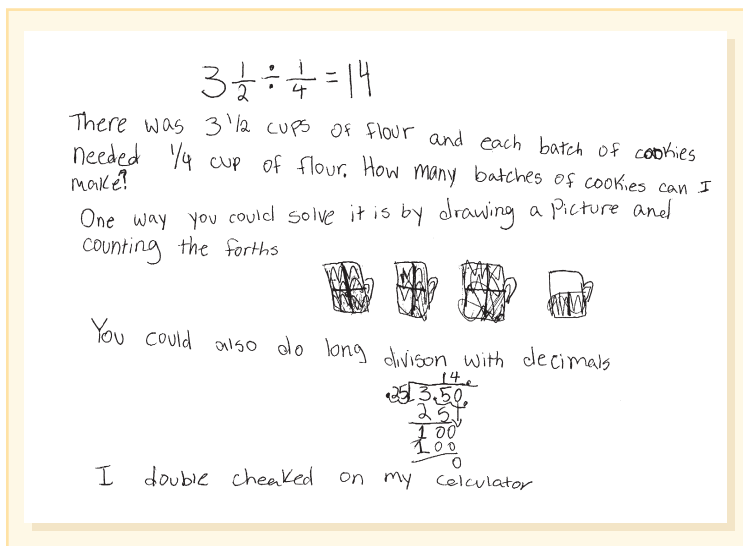 3 1/2 ÷ 1/4 = 14
There was 3 1/2 cups of flour and each batch of cookies
needed 1/4 cup of flour. How many batches of cookies can I
make?
One way you could solve it is by drawing a picture and
counting the forths
You could also do long divison with decimals
14.
.25 3.50.
2 5
1 00
1 00
0
I double cheaked on my celculator